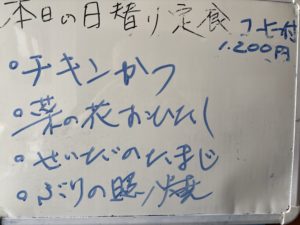 本日の日替り定食
コーヒー付
1.200円
・チキンかつ
・菜の花おひたし
・せいだのたまじ
・ぶりの照り焼